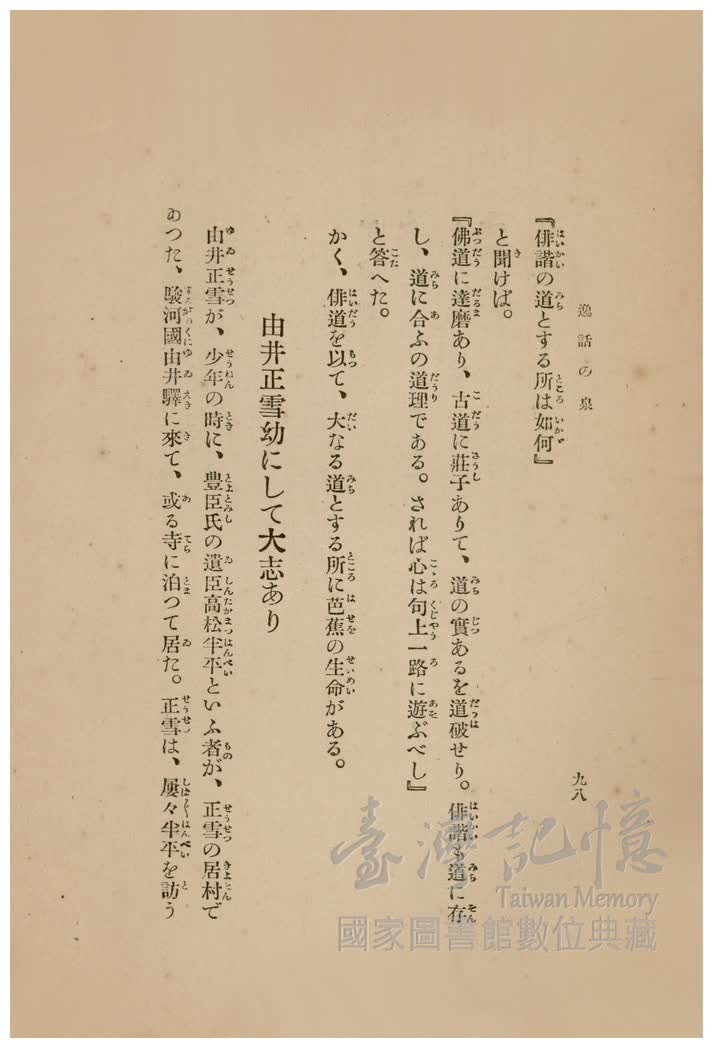 逸話の泉
九八
『俳諧の道とする所は如何』
と聞けば。
『佛道に達磨あり、古道に莊子ありて、道の實あるを道破せり。俳諧も道に存
し、道に合ふの道理である。されば心は句上一路に遊ぶべし』
と答へた。
かく、俳道を以て、大なる道とする所に芭蕉の生命がある。
由井正雪幼にして大志あり
由井正雪が、少年の時に、豊臣氏の遺臣高松半平といふ者が、正雪の居村で
あつた、駿河國由井驛に來て、或る寺に泊つて居た。正雪は、屢々半平を訪う
臺灣記憶
Taiwan Memory
國家圖書館數位典藏